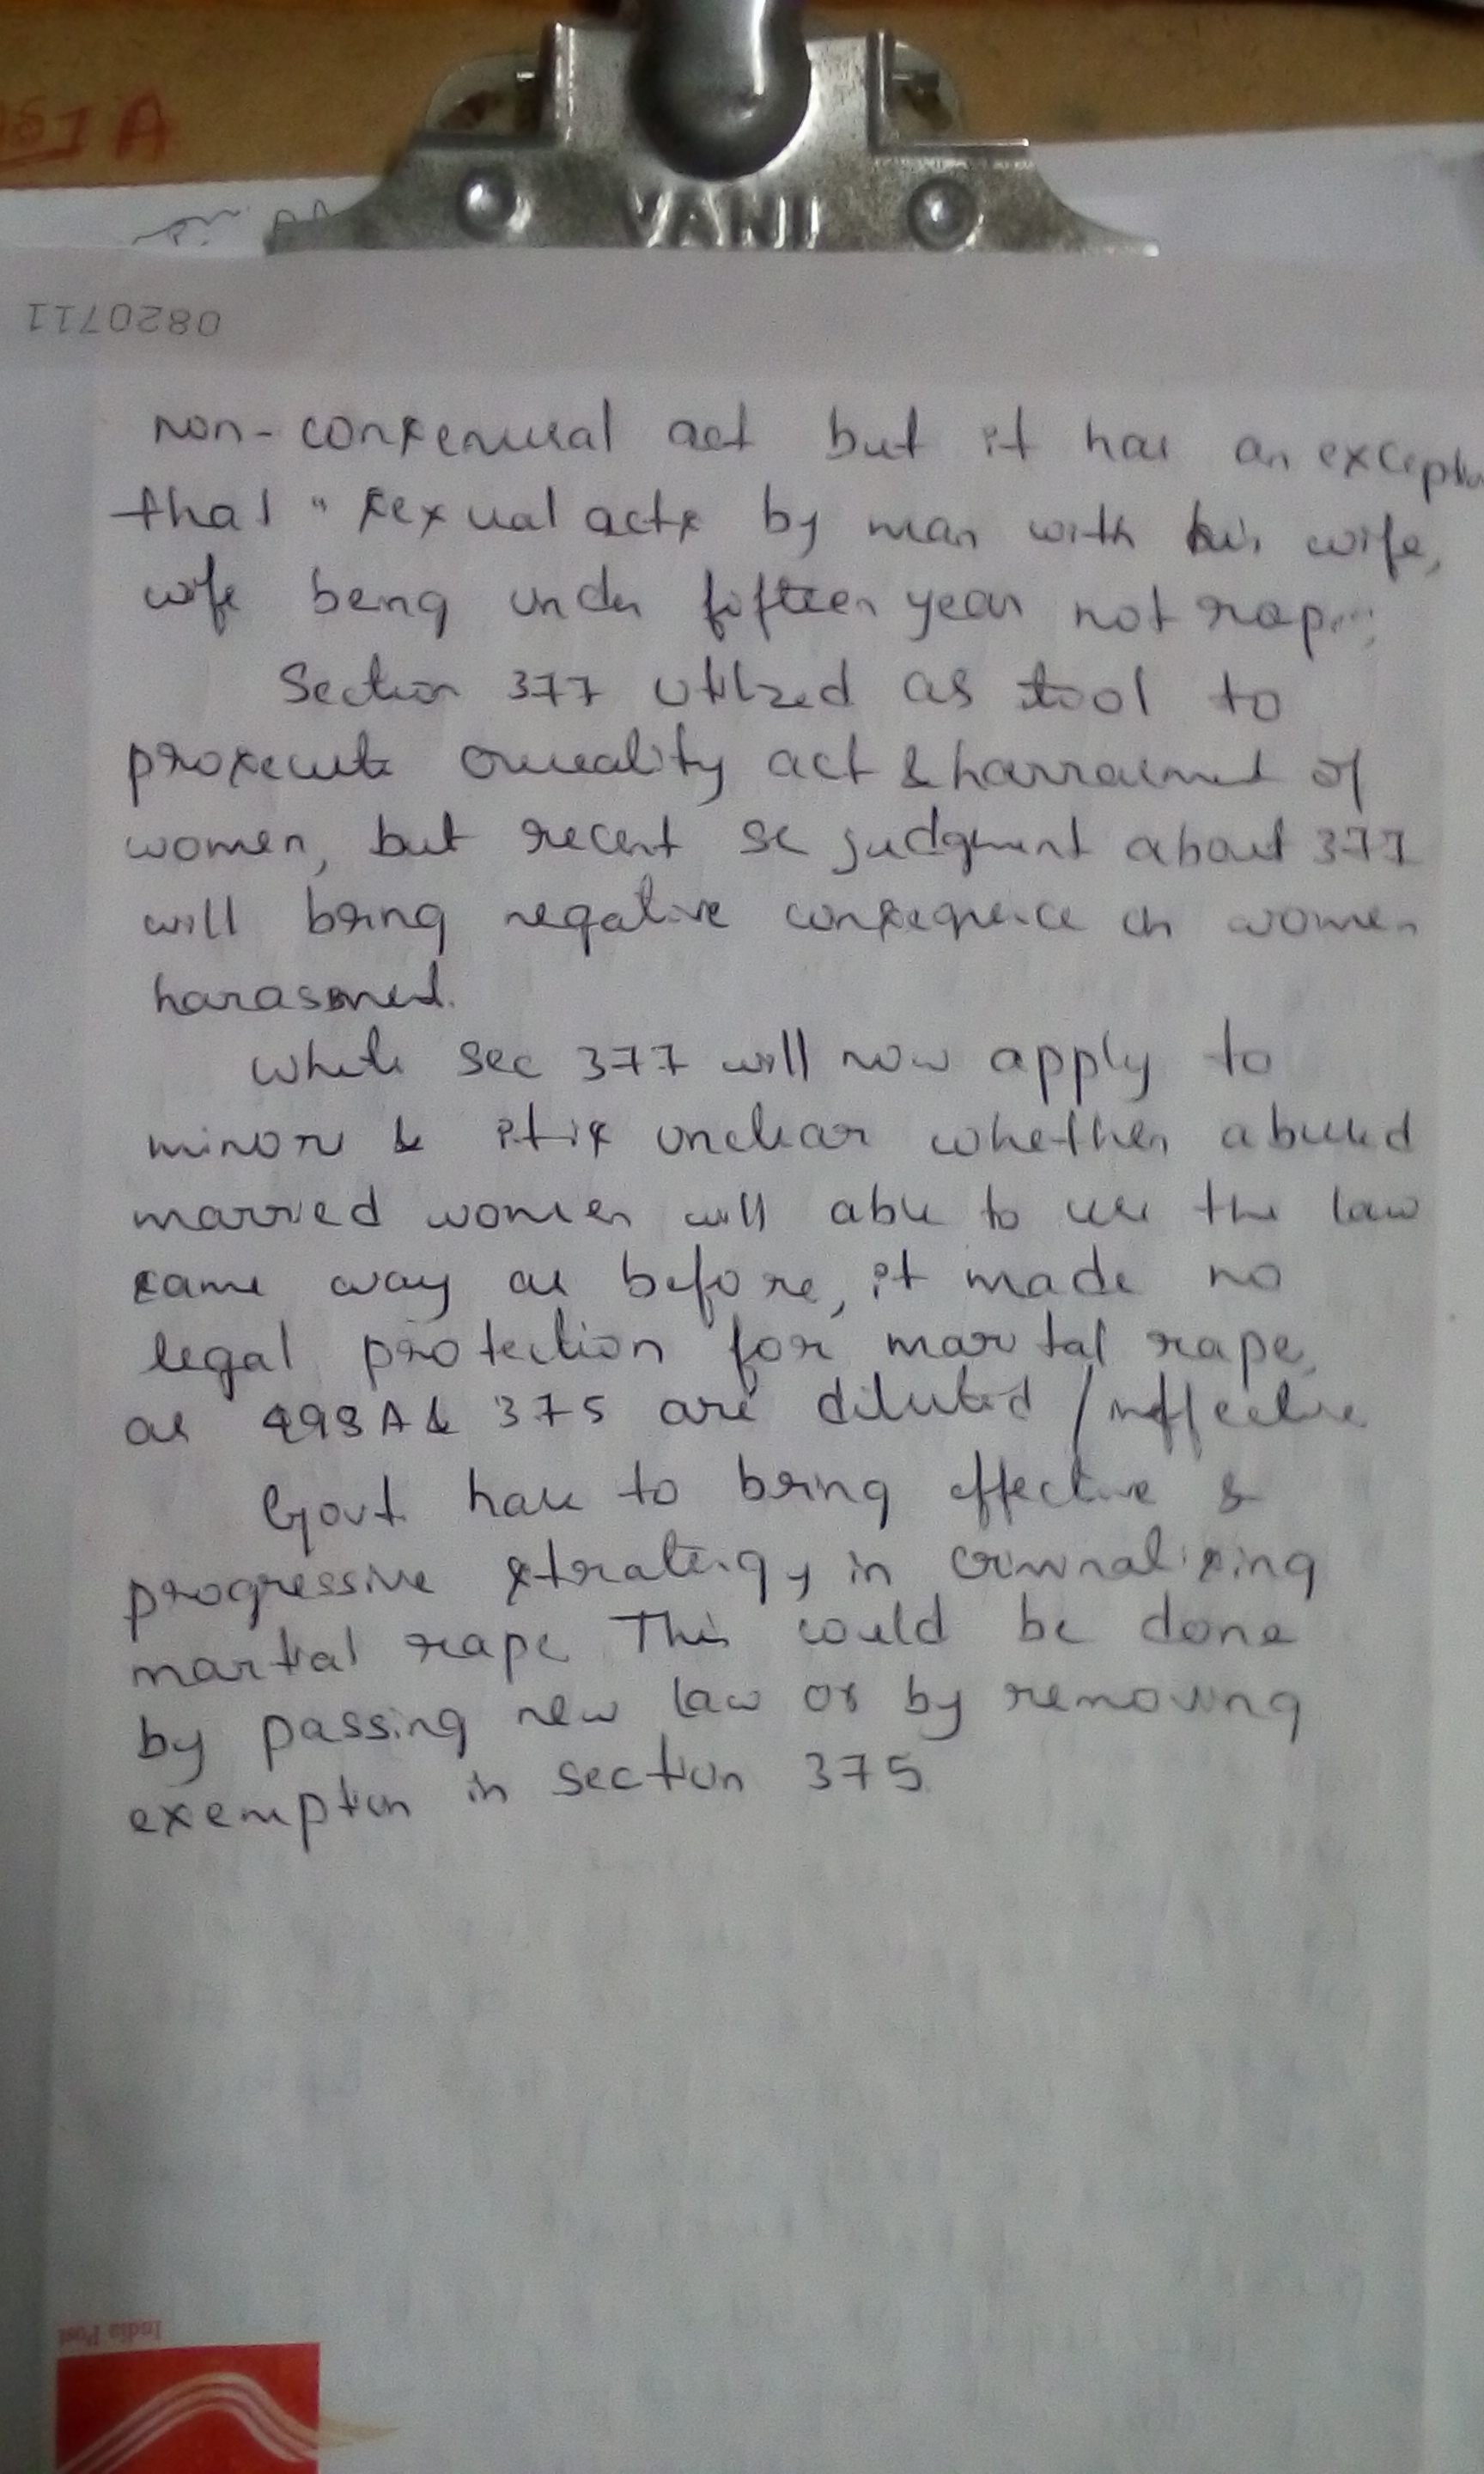 VANI
0820711
non-consensual act but it has an exception
that "sexual acts by man with his wife,
wife being under fifteen year not rape
Section 377 utilized as tool to
prosecute cruealty act & harrasment of
women, but recent SC judgment about 377
will bring negative consequence on women
harassment.
While Sec 377 will now apply to
minor & it is unclear whether abused
married women will able to use the law
same way as before, it made no
legal protection for marital rape,
as 498A & 375 are diluted / ineffective
Govt have to bring effective &
progressive strategy in criminalising
marital rape This could be done
by passing new law or by removing
exemption in section 375
India Post